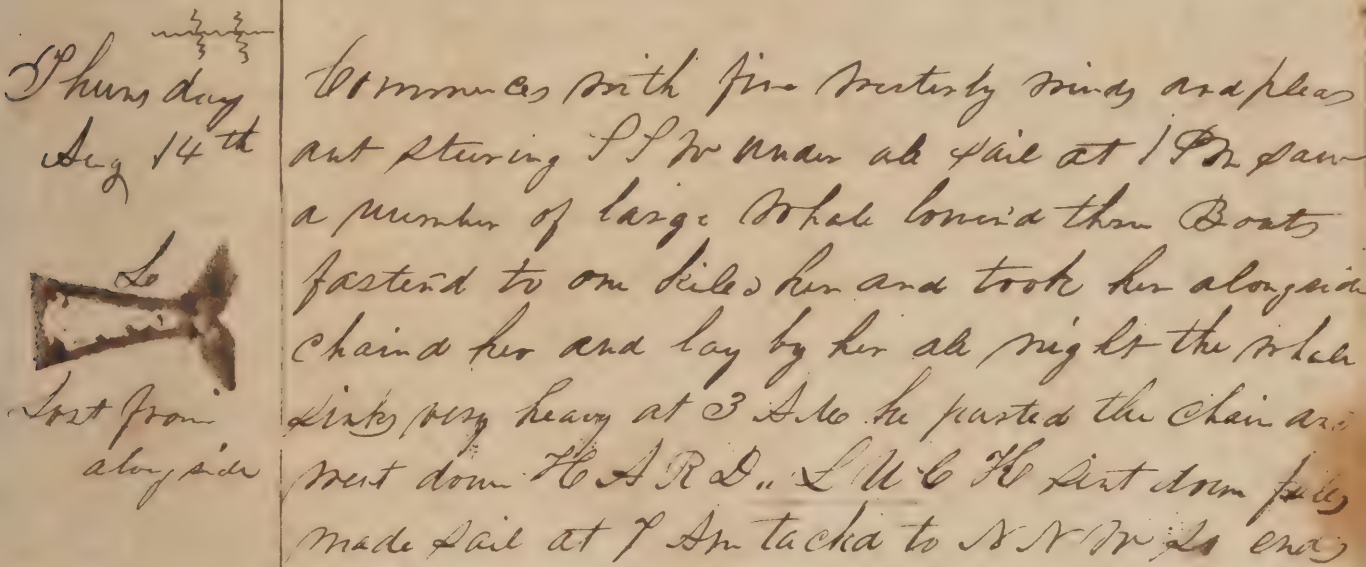 Thursday
Aug 14th
Lo
Lost from
along side
Commences with fine Westerly winds and pleas
ant steering S S W under all sail at 1 PM saw
a number of large Whale lowerd three Boats
fastend to one killed her and took her alongside
chaind her and lay by her all night the whale
sinks very heavy at 3 AM he parted the chain and
went down H A R D " L U C K sent down
made sail at 7 Am tackd to N N W So ends